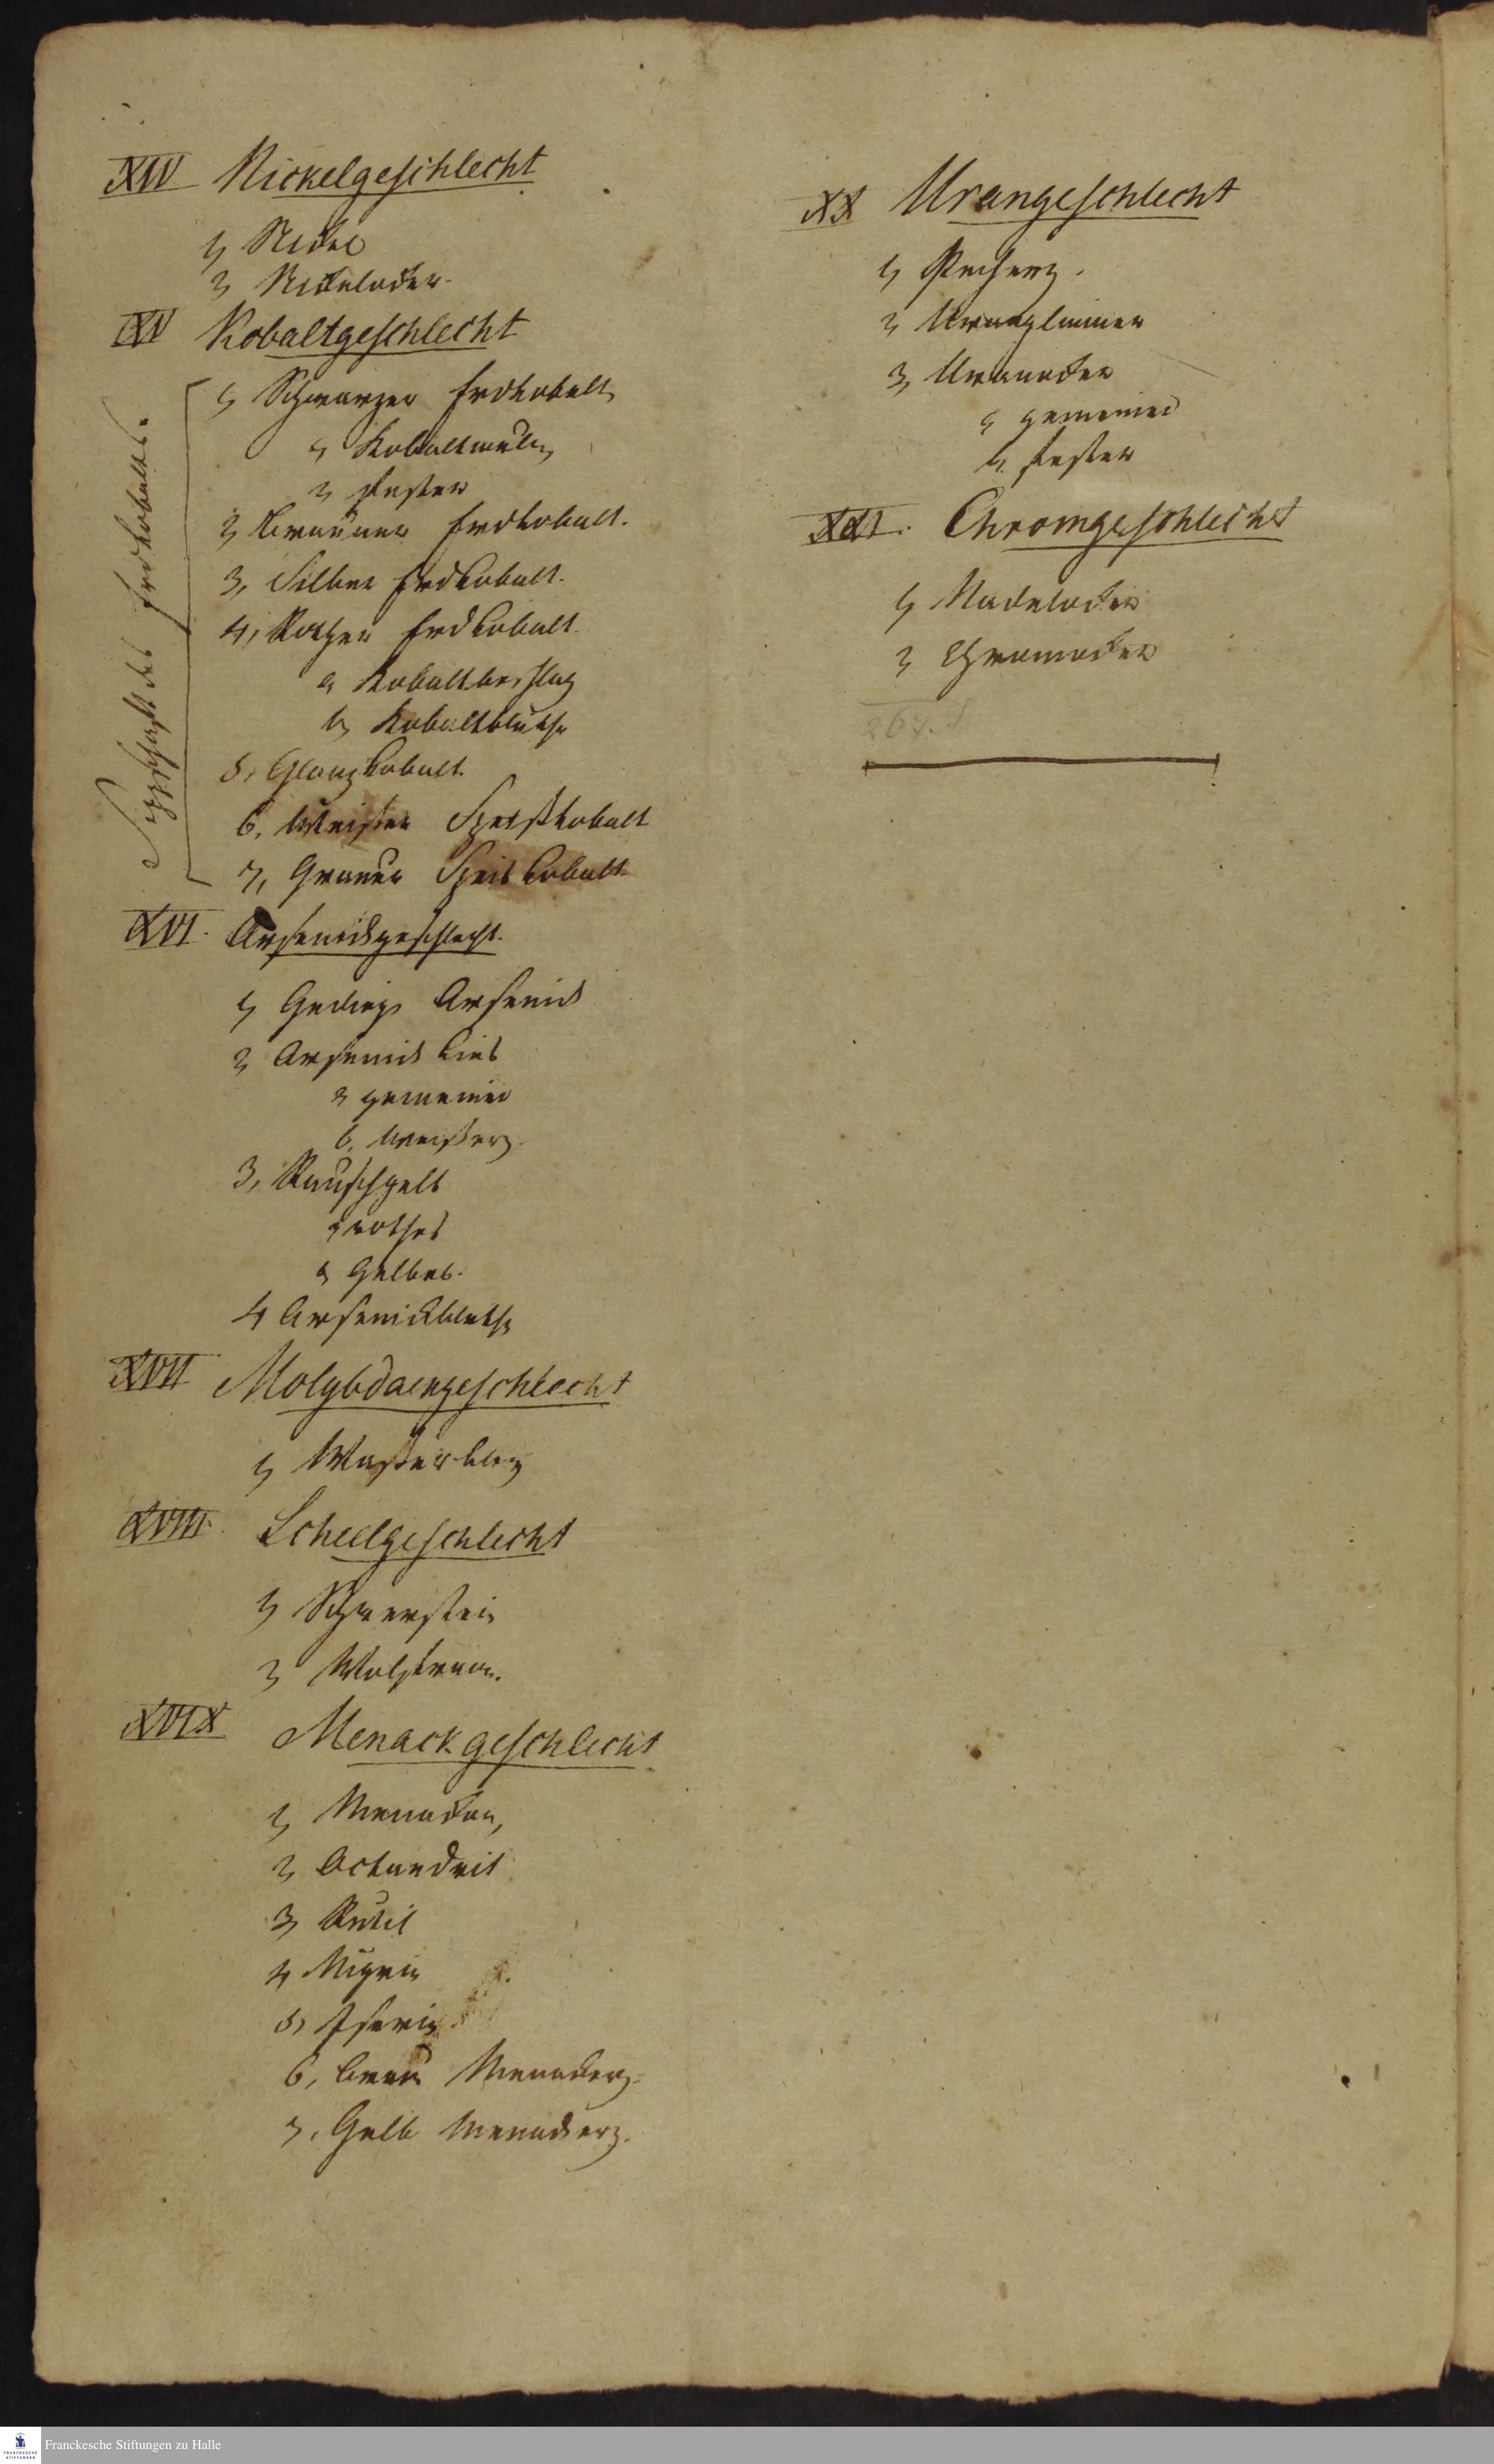 XIV Nickelgeschlecht
1, Nickel
2, Nickelocker.
XV Kobaltgeschlecht
Sippschaft des Erdkobalts.
1, Schwarzer Erdkobalt
a, Kobaltmulm
b, fester
2, Brauner Erdkobalt.
3, Gelber Erdkobalt.
4, Rother Erdkobalt.
a, Kobaltbeschlag
b, Kobaltblüthe
5, Glanzkobalt.
6, Weißer Speißkobalt
7, Grauer Speiskobalt.
XVI. Arsenickgeschlecht.
1, Gediegn Arsenick
2, Arsenick kies
a, gemeiner
b, Weißerz.
3, Rauschgelb
a, rothes
b, Gelbes.
4 Arsenickblüthe
XVII Molybdaengeschlecht
1, Wasserbley
XVIII. Scheelgeschlecht
1, Schwerstein
2, Wolfram.
XVIX Menackgeschlecht
1, Menackan,
2, Octaedrit
3, Rutil
4, Nigrin
5, Iserin
6, Braun Menackerz.
7, Gelb Menackerz.
XX Urangeschlecht
1, Pecherz.
2, Uranglimmer
3, Uranocker
a, gemeiner
b, fester
XXI. Chromgeschlecht
1, Nadelocker
2, Chromocker
Franckesche Stiftungen zu Halle
FRANCKESCHE
STIFTUNGEN